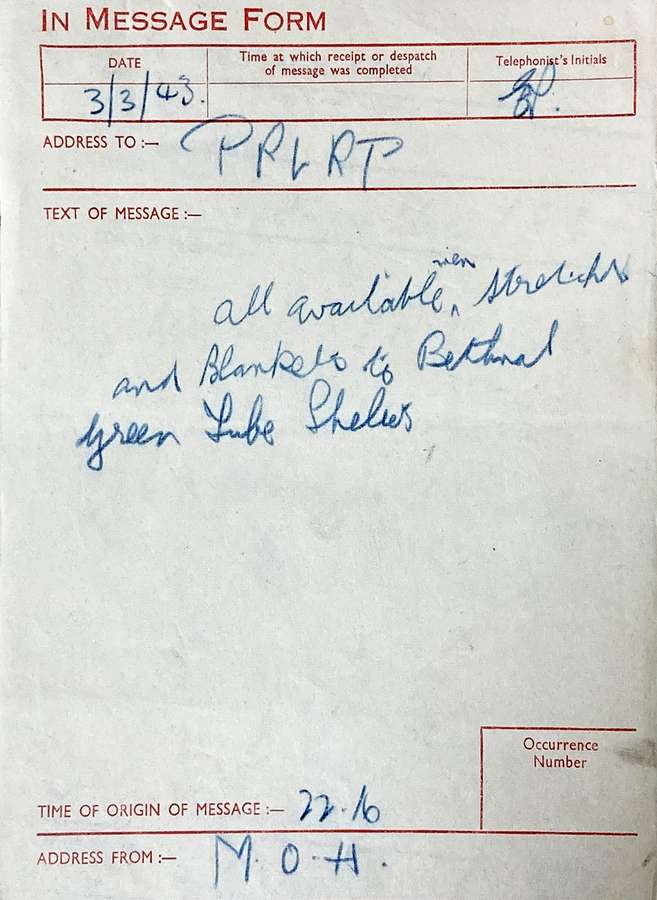 IN MESSAGE FORM
DATE
Time at which receipt or despatch
of message was completed
Telephonist's Initials
3/3/43.
ADDRESS TO :—
TEXT OF MESSAGE :—
men
all available ‸ stretchers
and Blankets to Bethnal
Green Tube Shelter
Occurrence
Number
TIME OF ORIGIN OF MESSAGE :— 22.10
ADDRESS FROM :— M.O.H.